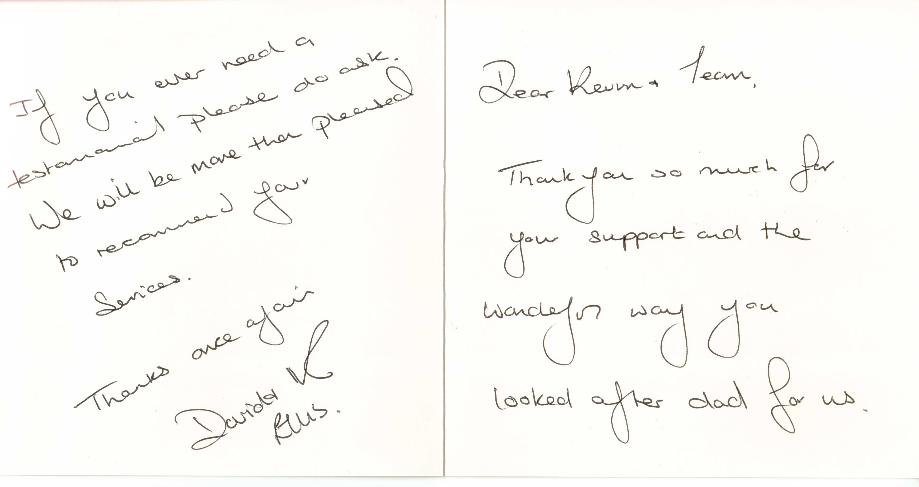 Dear Kevin + Team,
Thank you so much for
your support and the
wonderful way you
looked after dad for us.
If you ever need a
testamonial please do ask.
We will be more than pleased
to recommend your
Services.
Thanks once again
K